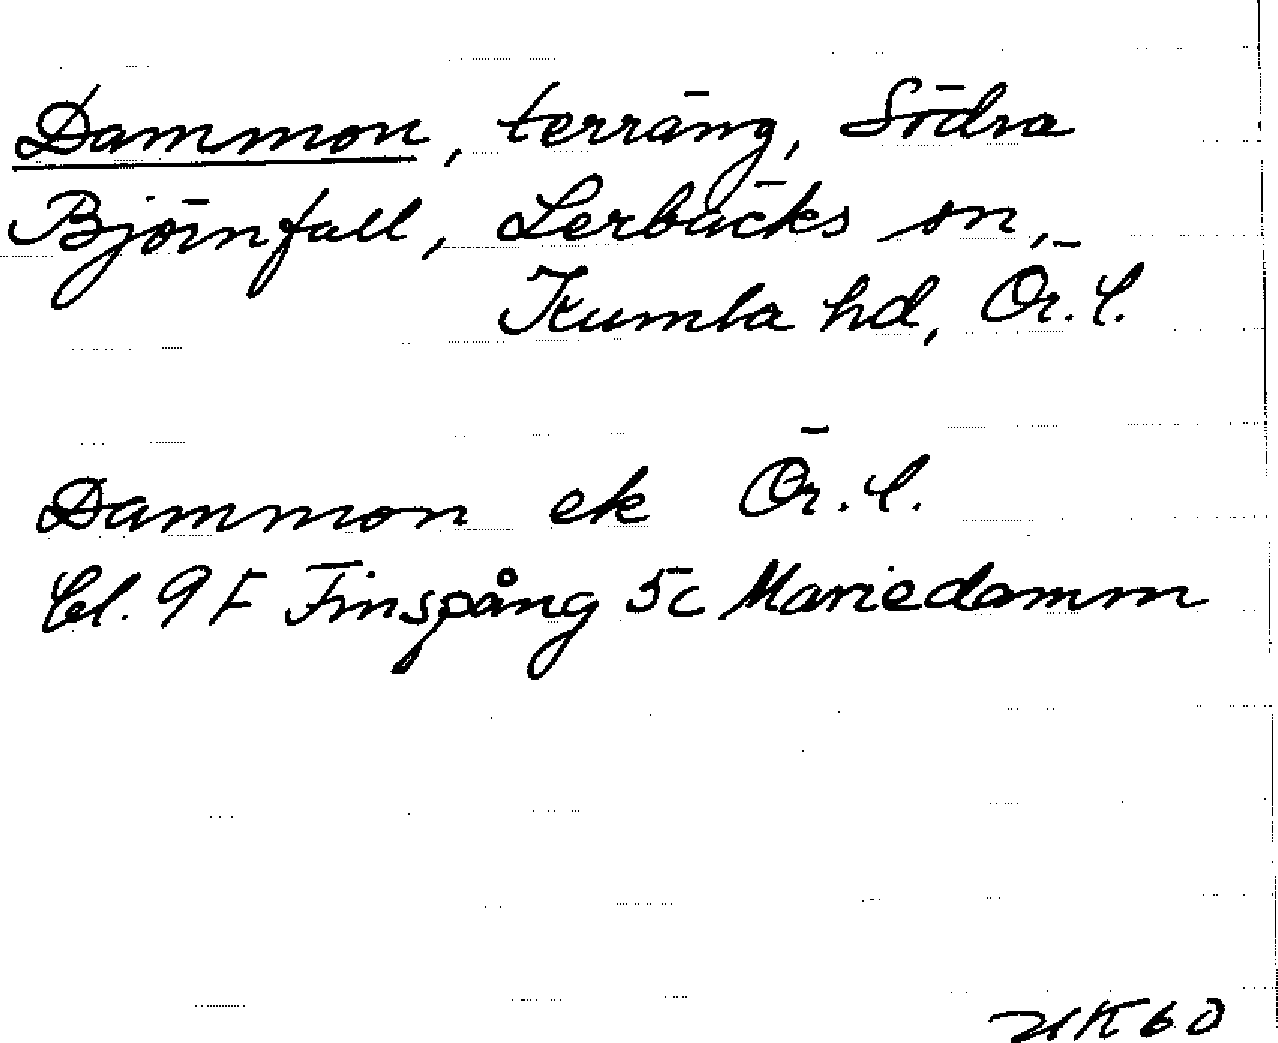 Dammon, terräng, Södra
Björnfall, Lerbäcks sn,
Kumla hd, Ör. l.
Dammon ek Ör. l.
bl. 9 F Finspång 5c Mariedamm